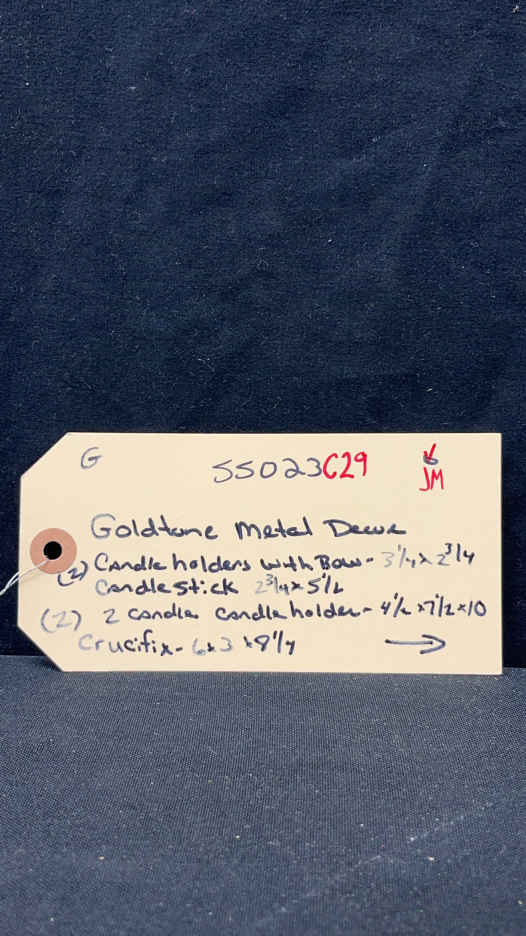 G
SS023C29
JM
Goldtone Metal Decor
(2) Candle holders with Bow - 3 1/4 x 2 3/4
Candlestick 2 3/4 x 5 1/2
(2) 2 candle candle holder - 4 1/2 x 7 1/2 x 10
Crucifix - 6 x 3 x 8 1/4 →